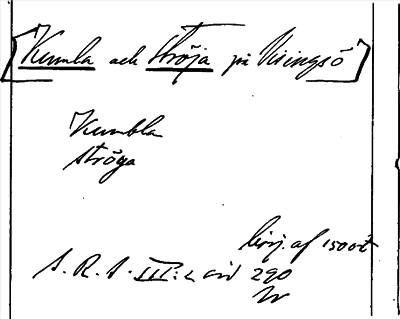 [Kumla och Ströja på Visingsö]
Kumbla
Ströga
börj. af 1500-t
S. R. S. III: 2 sid 290